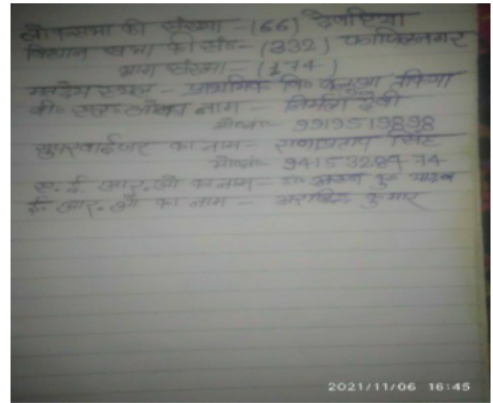 लोकसभा की संख्या - (66) देवरिया
विधान सभा की सं० - (332) फाजिलनगर
भाग संख्या - (174)
मतदेय स्थल - प्राथमिक वि०
बी० एल० ओ० का नाम - निर्मला देवी
मो०नं० - 9919519898
सुपरवाईजर का नाम - राणाप्रताप सिंह
मो०नं० - 9415328774
ए. ई. आर. ओ का नाम -
ई. आर. ओ का नाम - कुमार
2021/11/06 16:45